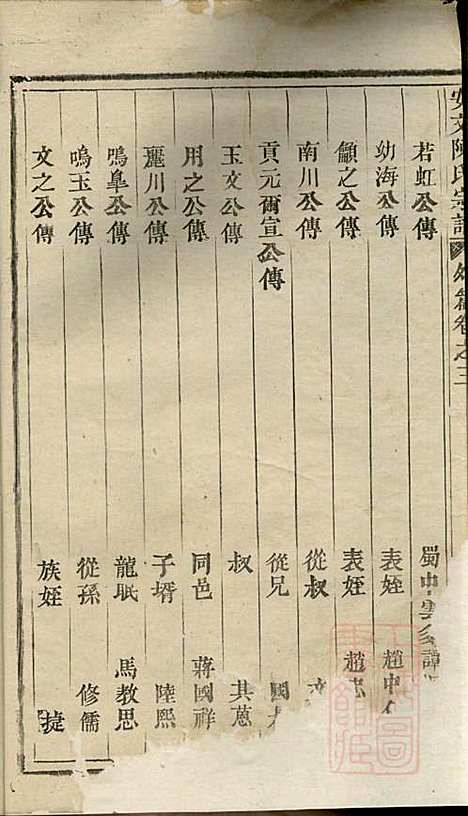 安文陳氏宗譜 外篇卷之三
若虹公傳 蜀中雲
幼海公傳 表姪 趙中
顧之公傳 表姪 趙忠
南川公傳 從叔 文
貢元爾宣公傳 從兄 國
玉文公傳 叔 其蔥
用之公傳 同邑 蔣國祥
麗川公傳 子壻 陸熙
鳴臯公傳 龍眠 馬教思
鳴玉公傳 從孫 修儒
文之公傳 族姪 捷